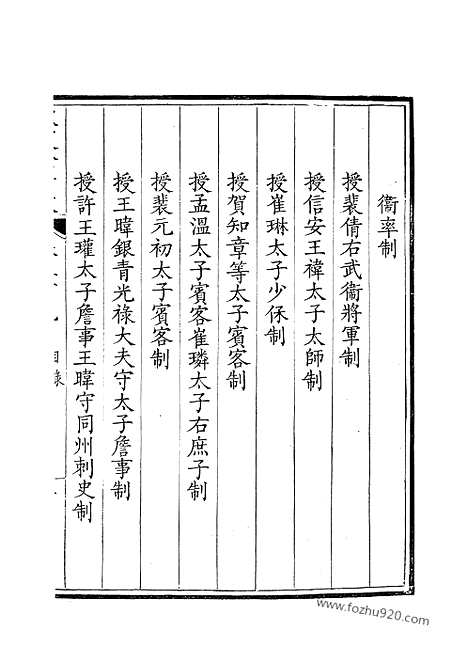 衞率制
授裴倩右武衞將軍制
授信安王褘太子太師制
授崔琳太子少保制
授賀知章等太子賓客制
授孟溫太子賓客崔璘太子右庶子制
授裴元初太子賓客制
授王暐銀青光祿大夫守太子詹事制
授許王瓘太子詹事王暐守同州刺史制
目錄
www.fozhu920.com